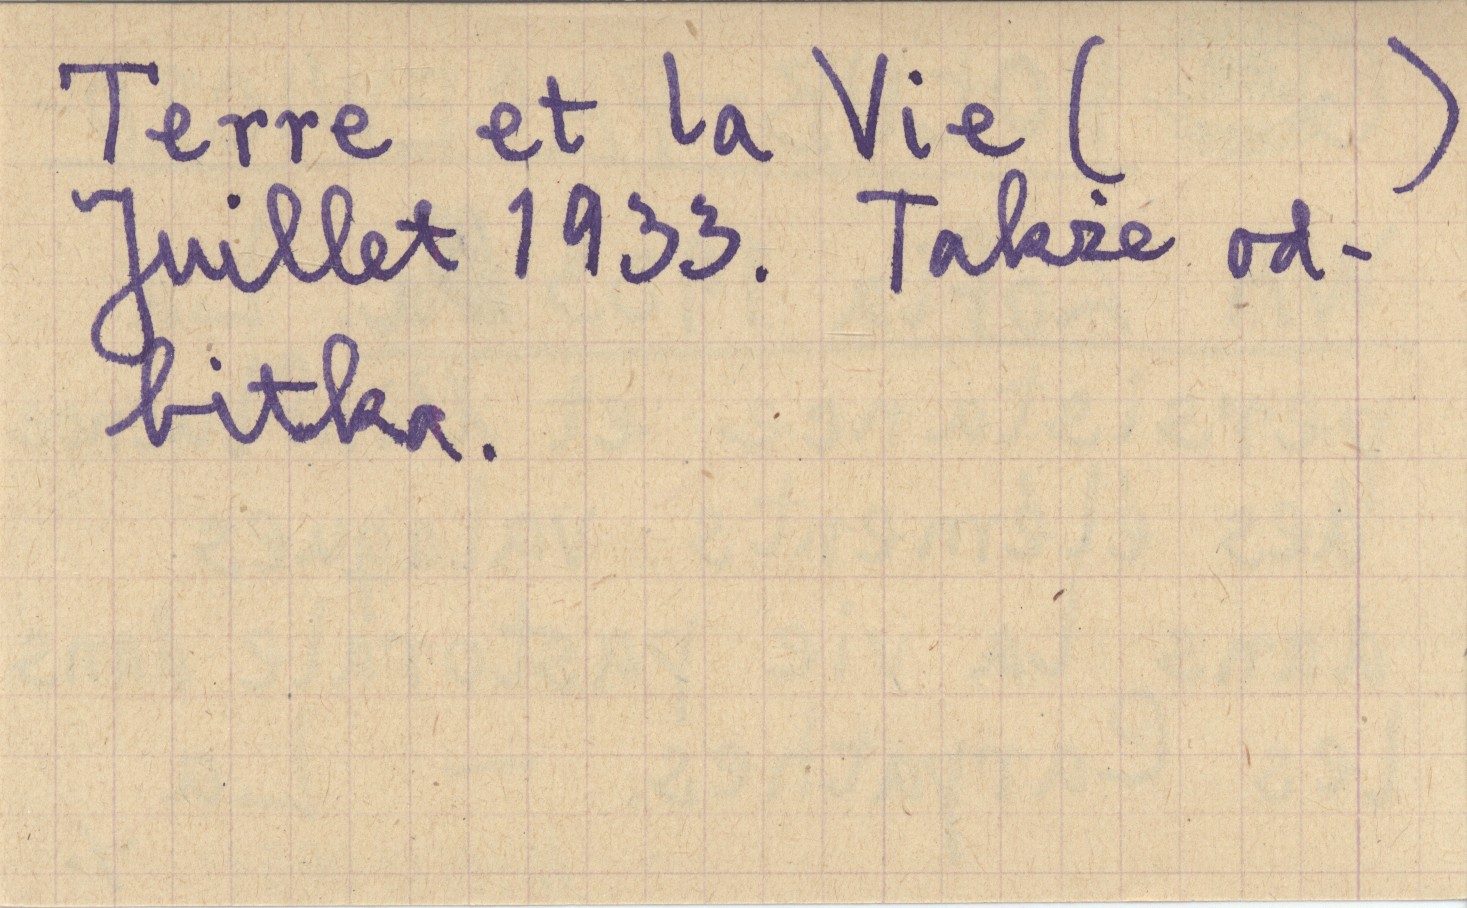 Terre et la Vie ( )
Juillet 1933. Także od-
bitka.